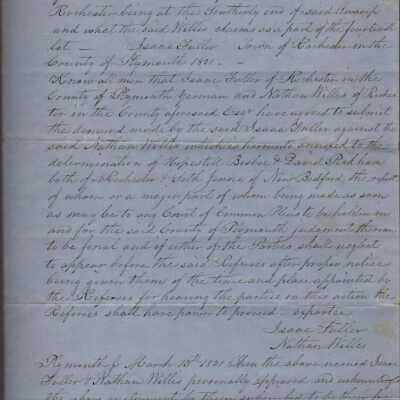 Rochester being at the Southerly end of said Swamp
and what the said Willis claims as a part of the fourteenth
lot — Isaac Fuller Town of Rochester in the
County of Plymouth 1821. —
Know all men that Isaac Fuller of Rochester in the
County of Plymouth Yeoman and Nathan Willis of Roches
ter in the County aforesaid Esqr have agreed to submit
the demand made by the said Isaac Fuller against the
said Nathan Willis which is hereunto annexed to the
determination of Hopestill Bisbee & David Peckham
both of Rochester & Seth Spooner of New Bedford, the report
of whom or a major part of whom being made as soon
as may be to any Court of Common Pleas to be holden in
and for the said County of Plymouth judgment thereon
to be final and if either of the Parties shall neglect
to appear before the said Referees after proper notice
being given them of the time and place appointed by
the Referees for hearing the parties in this action the
Referees shall have power to proceed exparte
Isaac Fuller
Nathan Willis
Plymouth ss March 15th 1821 Then the above named Isaac
Fuller & Nathan Willis personally appeared and acknowledged
the above